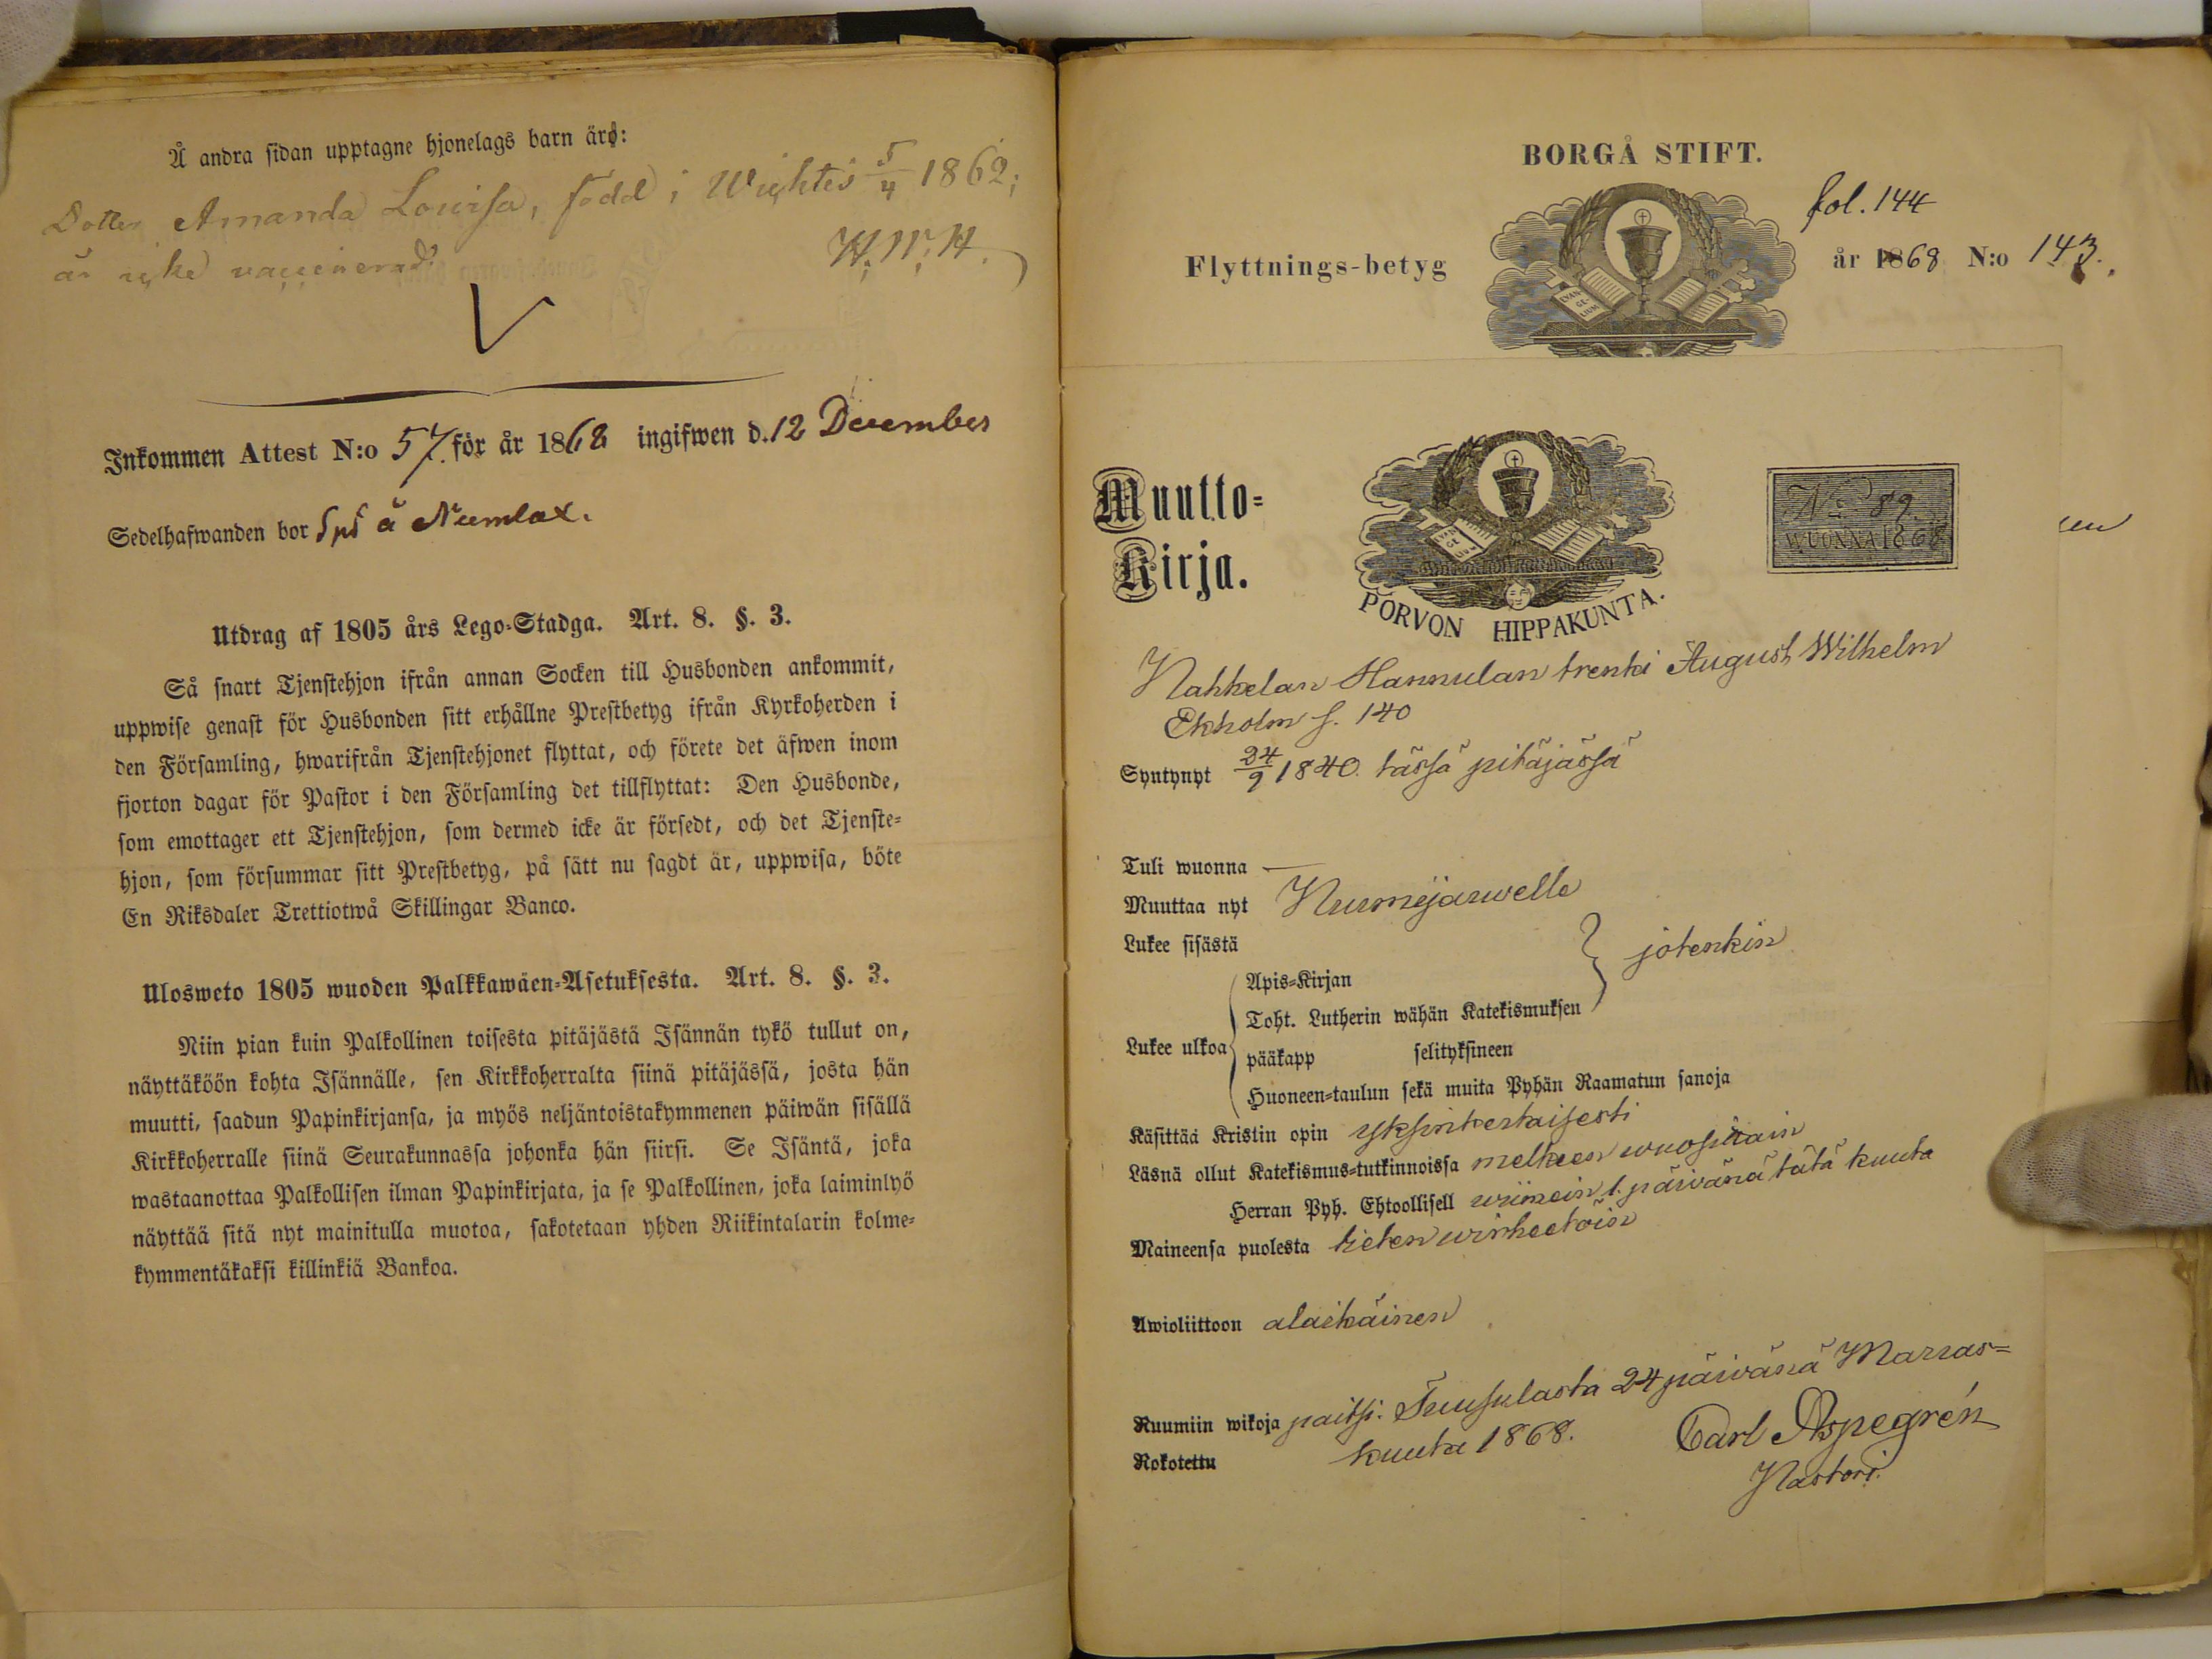 Å andra sidan upptagne hjonelags barn äro:
Dotter Amanda Lovisa, född i Wichtis 5/4 1862;
är icke vaccinerad.
Inkommen Attest N:o 57. för år 1868 ingifwen d. 12 December
Sedelhafwanden bor Sps å Numlax.
Utdrag af 1805 års Lego-Stadga. Art. 8. §. 3.
Så snart Tjenstehjon ifrån annan Socken till Husbonden ankommit,
uppwise genast för Husbonden sitt erhållne Prestbetyg ifrån Kyrkoherden i
den Församling, hwarifrån Tjenstehjonet flyttat, och förete det äfwen inom
fjorton dagar för Pastor i den Församling det tillflyttat: Den Husbonde,
som emottager ett Tjenstehjon, som dermed icke är försedt, och det Tjenste-
hjon, som försummar sitt Prestbetyg, på sätt nu sagdt är, uppwisa, böte
En Riksdaler Trettiotwå Skillingar Banco.
Ulosweto 1805 wuoden Palkkawäen-Asetuksesta. Art. 8. §. 3.
Niin pian kuin Palkollinen toisesta pitäjästä Isännän tykö tullut on,
näyttäköön kohta Isännälle, sen Kirkkoherralta siinä pitäjässä, josta hän
muutti, saadun Papinkirjansa, ja myös neljäntoistakymmenen päiwän sisällä
Kirkkoherralle siinä Seurakunnassa johonka hän siirsi. Se Isäntä, joka
wastaanottaa Palkollisen ilman Papinkirjata, ja se Palkollinen, joka laiminlyö
näyttää sitä nyt mainitulla muotoa, sakotetaan yhden Riikintalarin kolme-
kymmentäkaksi killinkiä Bankoa.
BORGÅ STIFT.
fol. 144
Flyttnings-betyg
år 1868 N:o 143.
EVAN-
GE-
LIUM
Muutto-
Kirja.
EVAN
GE
LIUM
PORVON HIPPAKUNTA.
No 89
WUONNA 1868
Nahkelan Hannulan trenki August Wilhelm
Ekholm s. 140
Syntynyt 24/9 1840. tässä pitäjässä
Tuli wuonna —
Muuttaa nyt Nurmijärwelle
Lukee sisästä
jotenkin
Apis-Kirjan
Toht. Lutherin wähän Katekismuksen
Lukee ulkoa
pääkapp selityksineen
Huoneen-taulun sekä muita Pyhän Raamatun sanoja
Käsittää Kristin opin yksinkertaisesti
Läsnä ollut Katekismus-tutkinnoissa melkeen wuosittain
Herran Pyh. Ehtoollisell wiimein 1. päivänä tätä kuuta
Maineensa puolesta tieten wirheetöin
Awioliittoon alaikäinen
Ruumiin wikoja paitsi. Tuusulasta 24 päivänä Marras=
Rokotettu kuuta 1868. Carl Aspegrén
Pastori.